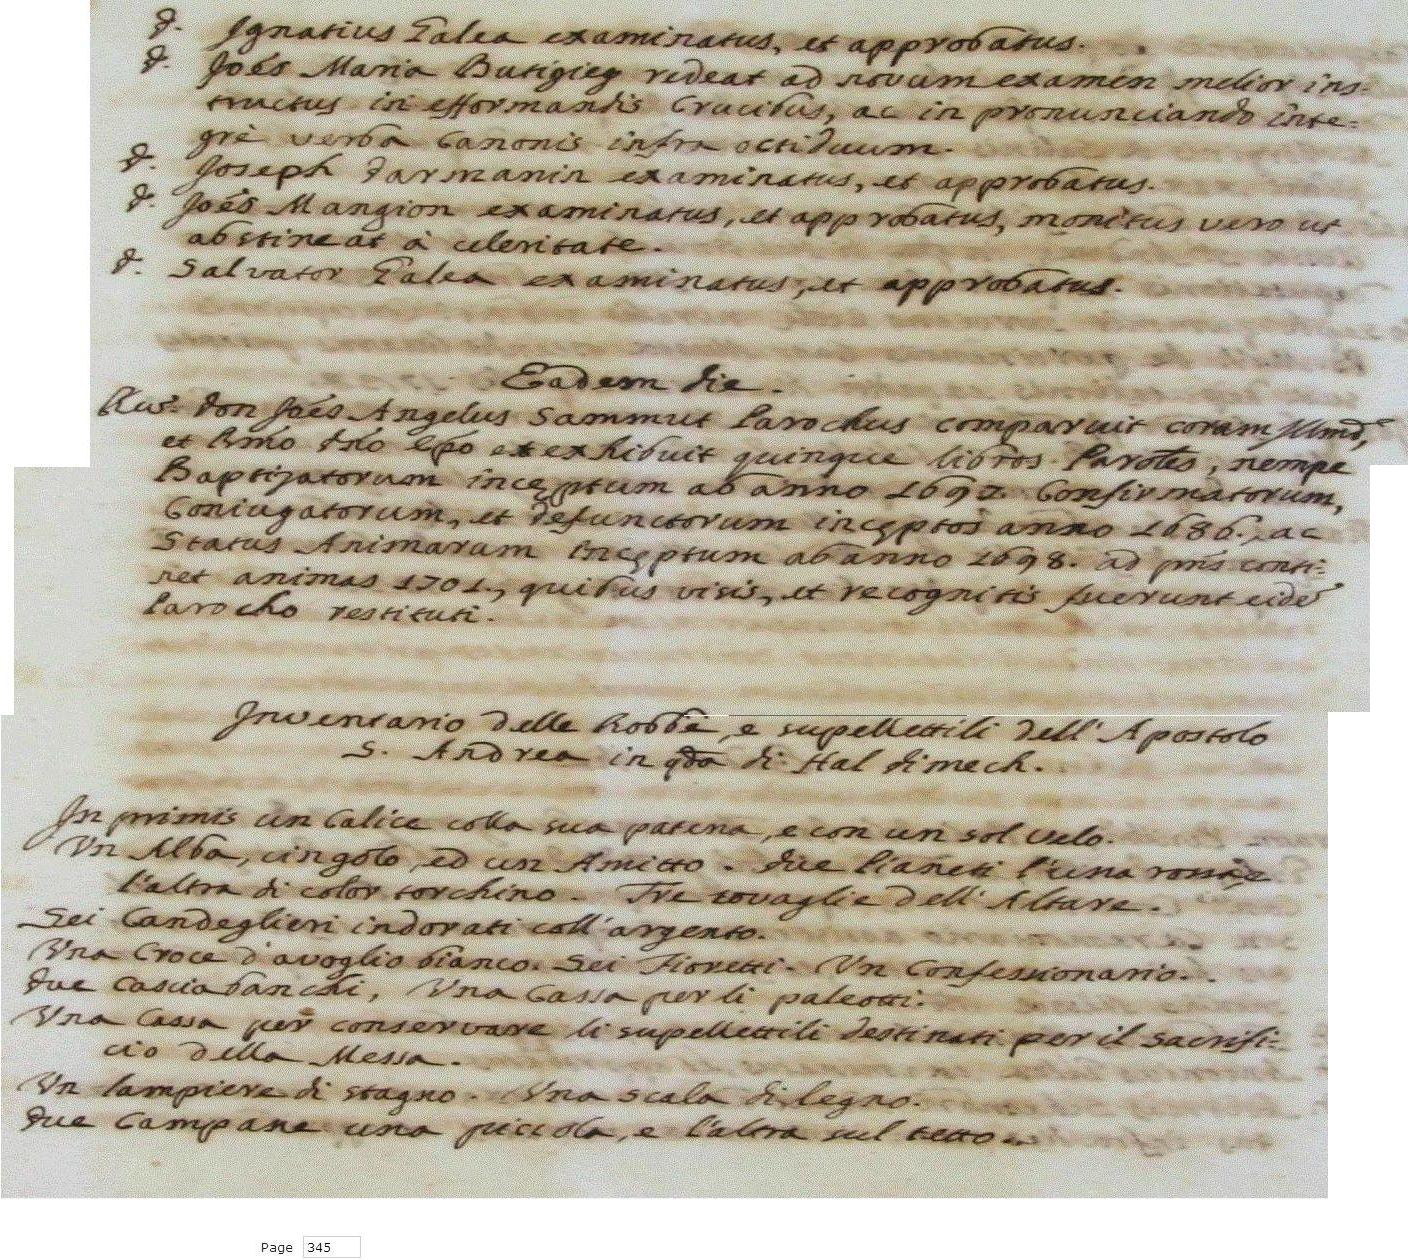 d. Ignatius Galea examinatus, et approbatus.
d. Joẽs Maria Butigieg redeat ad novum examen melior ins-
tructus in efformandis Crucibus, ac in pronunciando inte-
grè verba Canonis infra octiduum.
d. Joseph Darmanin examinatus, et approbatus.
d. Joẽs Mangion examinatus, et approbatus, monitus vero ut
abstineat à celeritate.
d. Salvator Galea examinatus, et approbatus.
Eadem die.
don Joẽs Angelus Sammut Parochus comparuit coram Illmõ,
et Rmõ dnõ Epõ et exhibuit quinque libros Paroles, nempe
Baptizatorum incęptum ab anno 1692. Confirmatorum,
Coniugatorum, et defunctorum incęptos anno 1686., ac
Status Animarum incęptum ab anno 1698. ad pñs conti-
net animas 1701., quibus visis, et recognitis fuerunt eidẽ
Parocho restituti.
Inventario delle Robbe, e supellettili dell' Apostolo
S. Andrea in qda di Hal dimech.
In primis un Calice colla sua patena, e con un sol velo.
Un Alba, cingolo, ed un Amitto. due Pianeti l'una rossa, e
l'altra di color torchino. Tre tovaglie dell' Altare.
Sei Candeglieri indorati coll' argento.
Una Croce d'avoglio bianco. Sei Fioretti. Un Confessionario.
due Casciabanchi, Una Cassa per li paleotti.
Una Cassa per conservare li supellettili destinati per il sacrifi-
cio della Messa.
Un lampiere di stagno. Una scala di legno.
due Campane una picciola, e l'altra sul tetto
Page 345